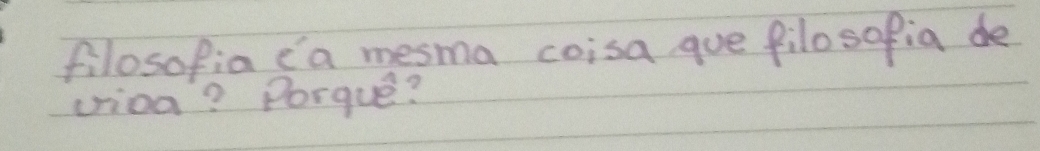 filosofia é a mesma coisa que filosofia de
vida? Porquê?